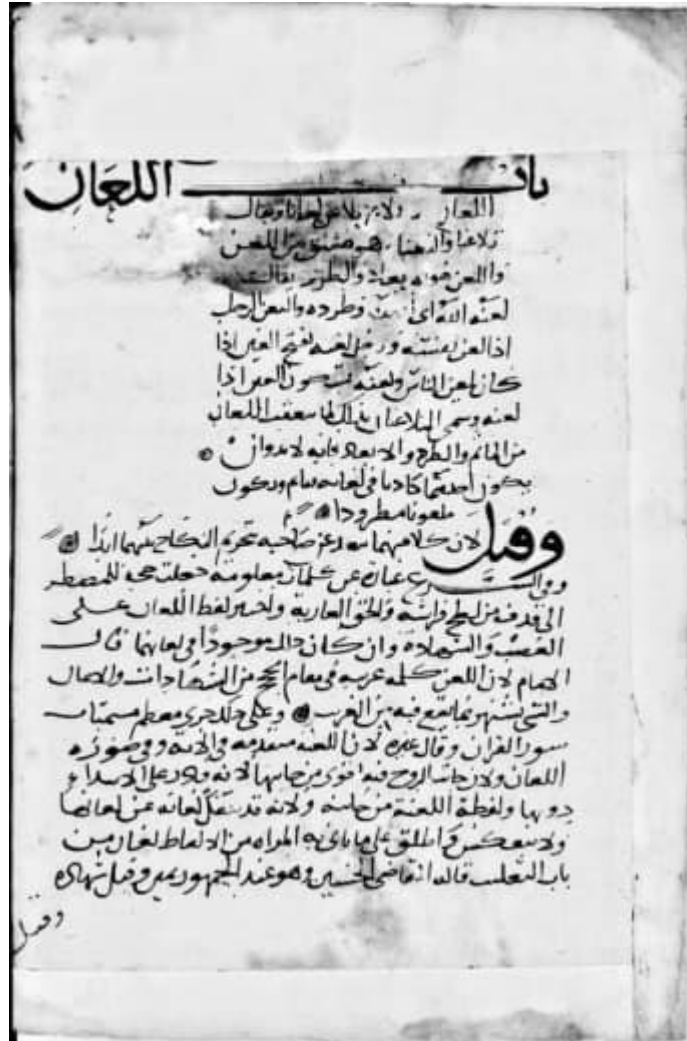 باب اللعان
اللعان يلاعن لعانا ويقال
تلاعنا والتعنا وهو مشتق من اللعن
واللعن هو الابعاد والطرد يقال
لعنه الله اي ابعده وطرده والتعن الرجل
اذا لعن نفسه ورجل لعنه بفتح العين اذا
كان يلعن الناس ولعنه بسكون العين اذا
لعنه وسمي المتلاعنان بذلك لما يعقب اللعان
من الماثم والطرد والابعاد فانه لابد وان
يكون احدهما كاذبا في لعانه ويكون
ملعونا مطرودا
وقيل لان كلا منهما يبعد عن صاحبه بتحريم النكاح بينهما ابدا
وفي الشرع عبارة عن كلمات معلومة جعلت حجة للمضطر
الى قذف من لطخ فراشه والحق العار به واختير لفظ اللعان على
الغضب والشهادة وان كان ذلك موجودا في لعانهما قال
الامام لان اللعن كلمة غريبه في مقام الحجج من الشهادات والايمان
والشي يشتهر بما يقع فيه من الغريب وعلى ذلك جرى معظم تسميات
سور القران وقال غيره لان اللعنة متقدمه في الاية وفي صورة
اللعان ولان جانب الزوج فيه اقوى من جانبها لانه قادر على الابتداء
دونها ولفظة اللعنة من جانبه ولانه قد ينفك لعانه عن لعانها
ولا ينعكس واطلق على ما ياتي به المراه من الالفاظ لعان من
باب التغليب قاله القاضي الحسين وهو عند الجمهور يمين وقيل شهادة
وقيل